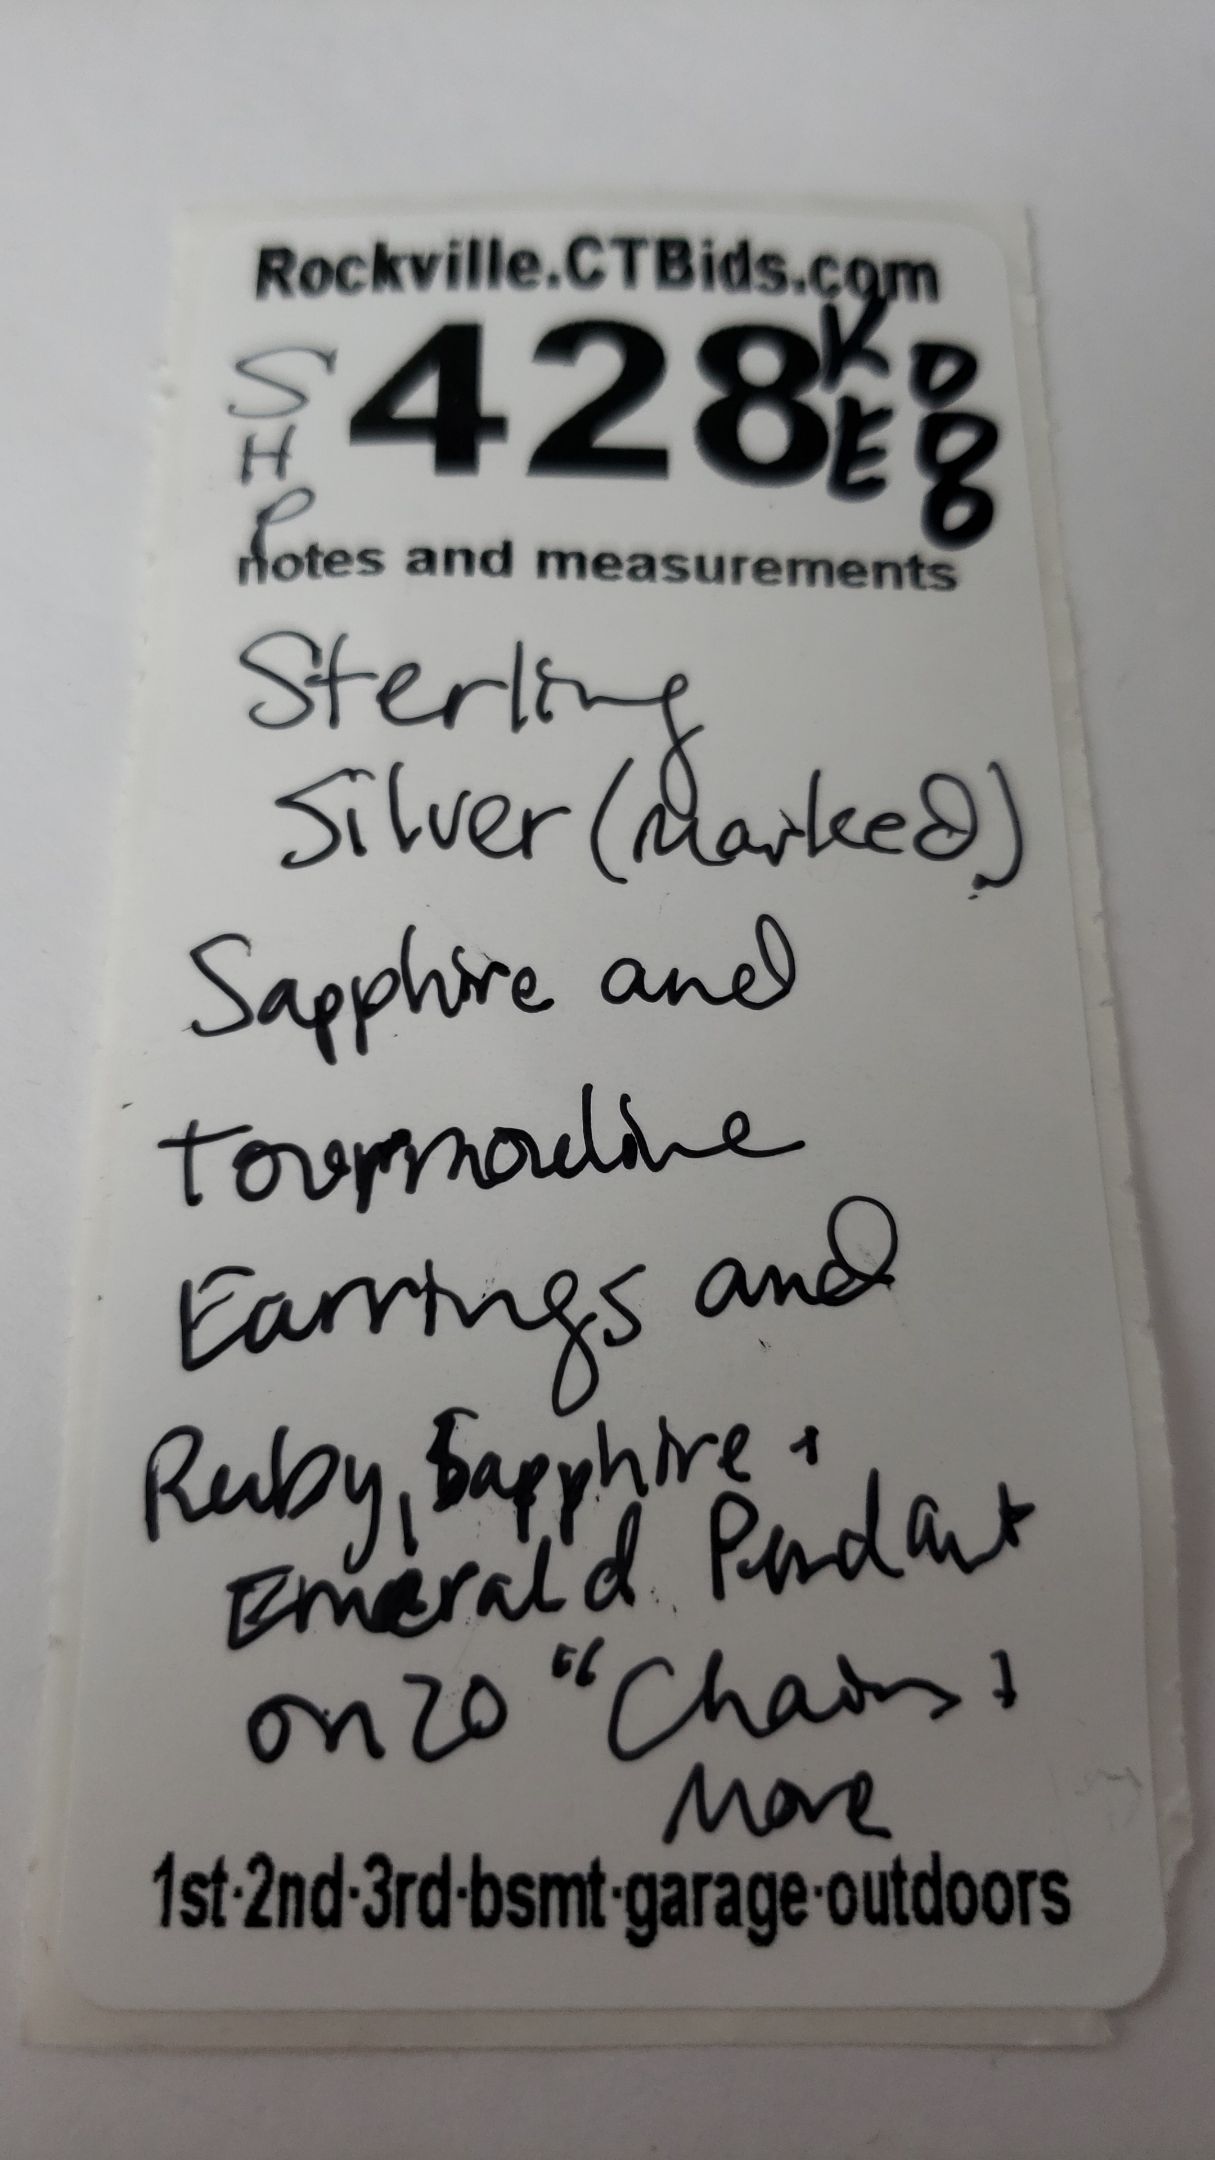 Rockville.CTBids.com
SHP 428 KE DOO
notes and measurements
Sterling
Silver (Marked)
Sapphire and
Tourmouline
Earrings and
Ruby, Sapphire +
Emerald Pendant
on 20 “ Chains +
More
1st·2nd·3rd·bsmt·garage·outdoors